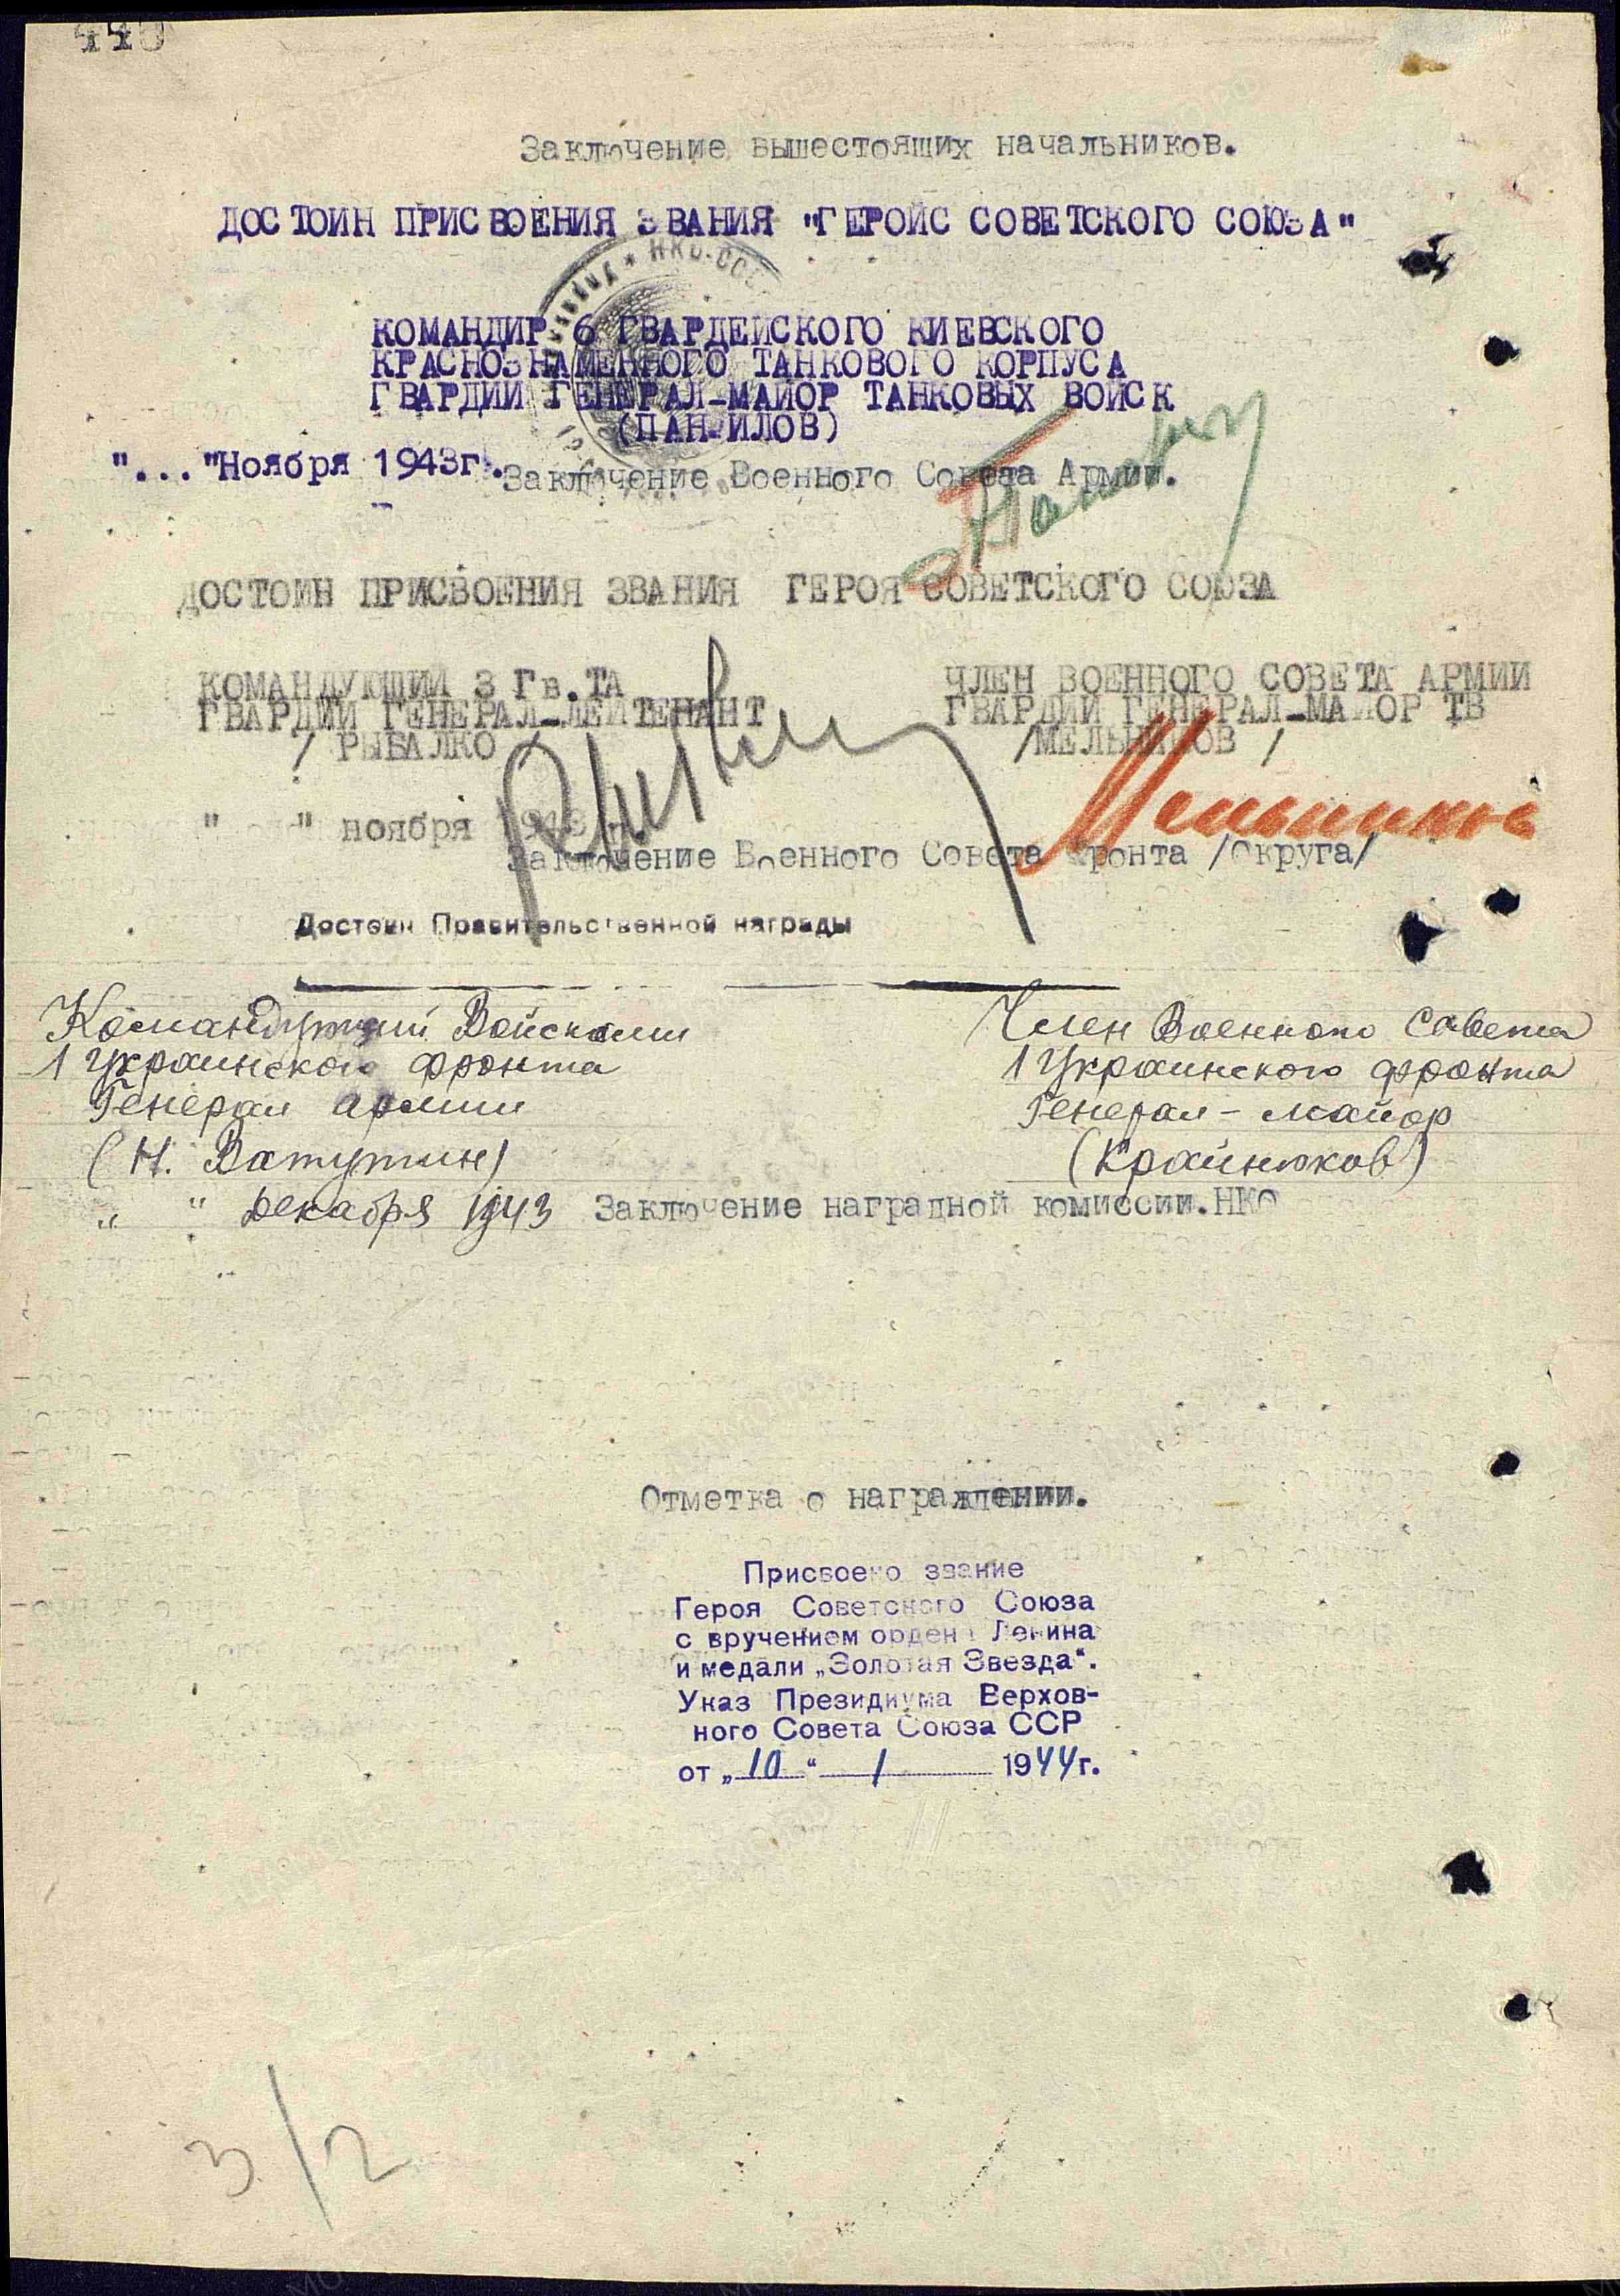 440
Заключение вышестоящих начальников.
ДОСТОИН ПРИСВОЕНИЯ ЗВАНИЯ "ГЕРОЙС СОВЕТСКОГО СОЮЗА"
НКО·СС
КОМАНДИР 6 ГВАРДЕЙСКОГО КИЕВСКОГО
КРАСНОЗНАМЕННОГО ТАНКОВОГО КОРПУСА
ГВАРДИИ ГЕНЕРАЛ-МАЙОР ТАНКОВЫХ ВОЙСК
(ПАН-ИЛОВ)
"..."Ноября 1943г.
Заключение Военного Совета Армии.
ДОСТОИН ПРИСВОЕНИЯ ЗВАНИЯ ГЕРОЯ СОВЕТСКОГО СОЮЗА
КОМАНДУЮЩИЙ 3 Гв.ТА
ГВАРДИИ ГЕНЕРАЛ-ЛЕЙТЕНАНТ
/ РЫБАЛКО /
ЧЛЕН ВОЕННОГО СОВЕТА АРМИИ
ГВАРДИИ ГЕНЕРАЛ-МАЙОР ТВ
/МЕЛЬНИКОВ /
Мельников
" " ноября 1943 г.
Заключение Военного Совета Фронта /Округа/
Достоин Правительственной награды
Командующий Войсками
1 Украинского фронта
Генерал армии
(Н. Ватутин)
" " декабря 1943
Член Военного Совета
1 Украинского фронта
Генерал-майор
(Крайнюков)
Заключение наградной комиссии.НКО
Отметка о награждении.
Присвоено звание
Героя Советского Союза
с вручением ордена Ленина
и медали „Золотая Звезда".
Указ Президиума Верхов-
ного Совета Союза ССР
от „10" 1 1944г.
3/2